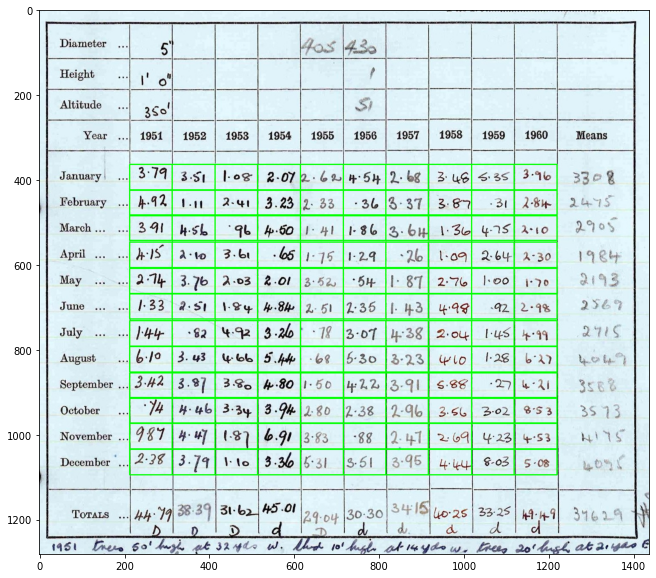 0 200 400 600 800 1000 1200 1400
0 200 400 600 800 1000 1200
Diameter ... 5" 405 430
Height ... 1' 0" 1'
Altitude ... 350' 51
Year ... 1951 1952 1953 1954 1955 1956 1957 1958 1959 1960 Means
January ... 3.79 3.51 1.08 2.07 2.62 4.54 2.68 3.48 5.35 3.96 3308
February ... 4.92 1.11 2.41 3.23 2.33 .36 3.37 3.87 .31 2.84 2475
March ... ... 3.91 4.56 .96 4.50 1.41 1.86 3.64 1.36 4.75 2.10 2905
April ... ... 4.15 2.10 3.61 .65 1.75 1.29 .26 1.09 2.64 2.30 1984
May ... ... 2.74 3.76 2.03 2.01 3.52 .54 1.87 2.76 1.00 1.70 2193
June ... ... 1.33 2.51 1.84 4.84 2.51 2.35 1.43 4.98 .92 2.98 2569
July ... ... 1.44 .82 4.92 3.26 .78 3.07 4.38 2.04 1.45 4.99 2715
August ... 6.10 3.43 4.66 5.44 .68 5.30 3.23 4.10 1.28 6.27 4049
September ... 3.42 3.87 3.80 4.80 1.50 4.22 3.91 5.88 .27 4.21 3588
October ... .74 4.46 3.34 3.94 2.80 2.38 2.96 3.56 3.02 8.53 3573
November ... 9.87 4.47 1.87 6.91 3.83 .88 2.47 2.69 4.23 4.53 4175
December ... 2.38 3.79 1.10 3.36 5.31 3.51 3.95 4.44 8.03 5.08 4095
Totals ... 44.79 38.39 31.62 45.01 29.04 30.30 34.15 40.25 33.25 49.49 37629
D D D d D d d. d d d
1951 trees 50' high at 32 yds W. 10' high at 14 yds W, trees 20' high at 21 yds E